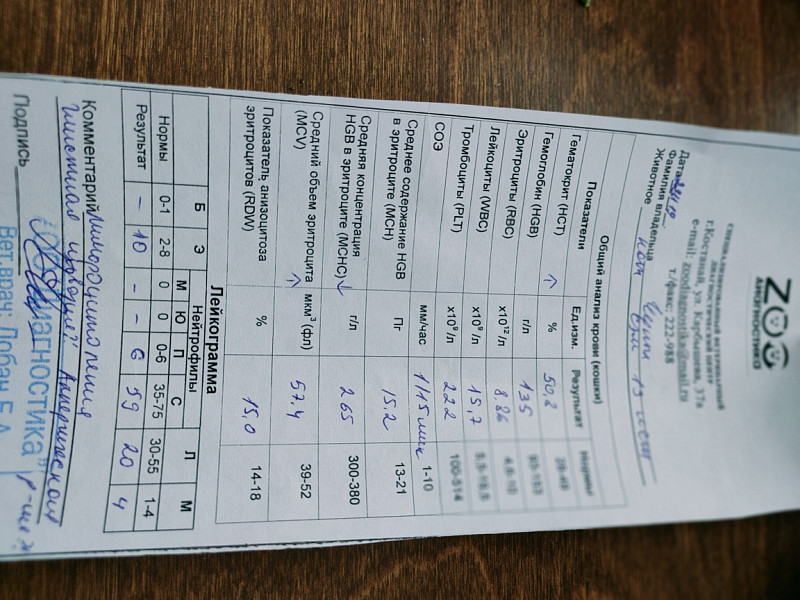 ZOO
ДИАГНОСТИКО
СПЕЦИАЛИЗИРОВАННЫЙ ВЕТЕРИНАРНЫЙ
ДИАГНОСТИЧЕСКИЙ ЦЕНТР
г.Костанай, ул. Карбышева, 37а
e-mail: zoodiagnostika@mail.ru
т/факс: 222-988
Дата
Фамилия владельца
Животное кот 13 лет
Общий анализ крови (кошки)
Показатели Ед.изм. Результат Нормы
Гематокрит (HCT) ↑ % 50,8
Гемоглобин (HGB) г/л 135
Эритроциты (RBC) х10¹²/л 8.86
Лейкоциты (WBC) х10⁹/л 15,7
Тромбоциты (PLT) х10⁹/л 222 100-514
СОЭ мм/час 1/15мин 1-10
Среднее содержание HGB в эритроците (MCH) Пг 15.2 13-21
Средняя концентрация HGB в эритроците (MCHC) ↓ г/л 265 300-380
Средний объем эритроцита (MCV) ↑ мкм³ (фл) 57.4 39-52
Показатель анизоцитоза эритроцитов (RDW) % 15,0 14-18
Лейкограмма
Б Э Нейтрофилы Л М
М Ю П С
Нормы 0-1 2-8 0 0 0-6 35-75 30-55 1-4
Результат - 10 - - 6 59 20 4
Комментарий Лимфоцитопения
Глистная инвазия? Аллергическая
р-ция?
Подпись
ДИАГНОСТИКА"
Вет.врач: Лобан Е.А.